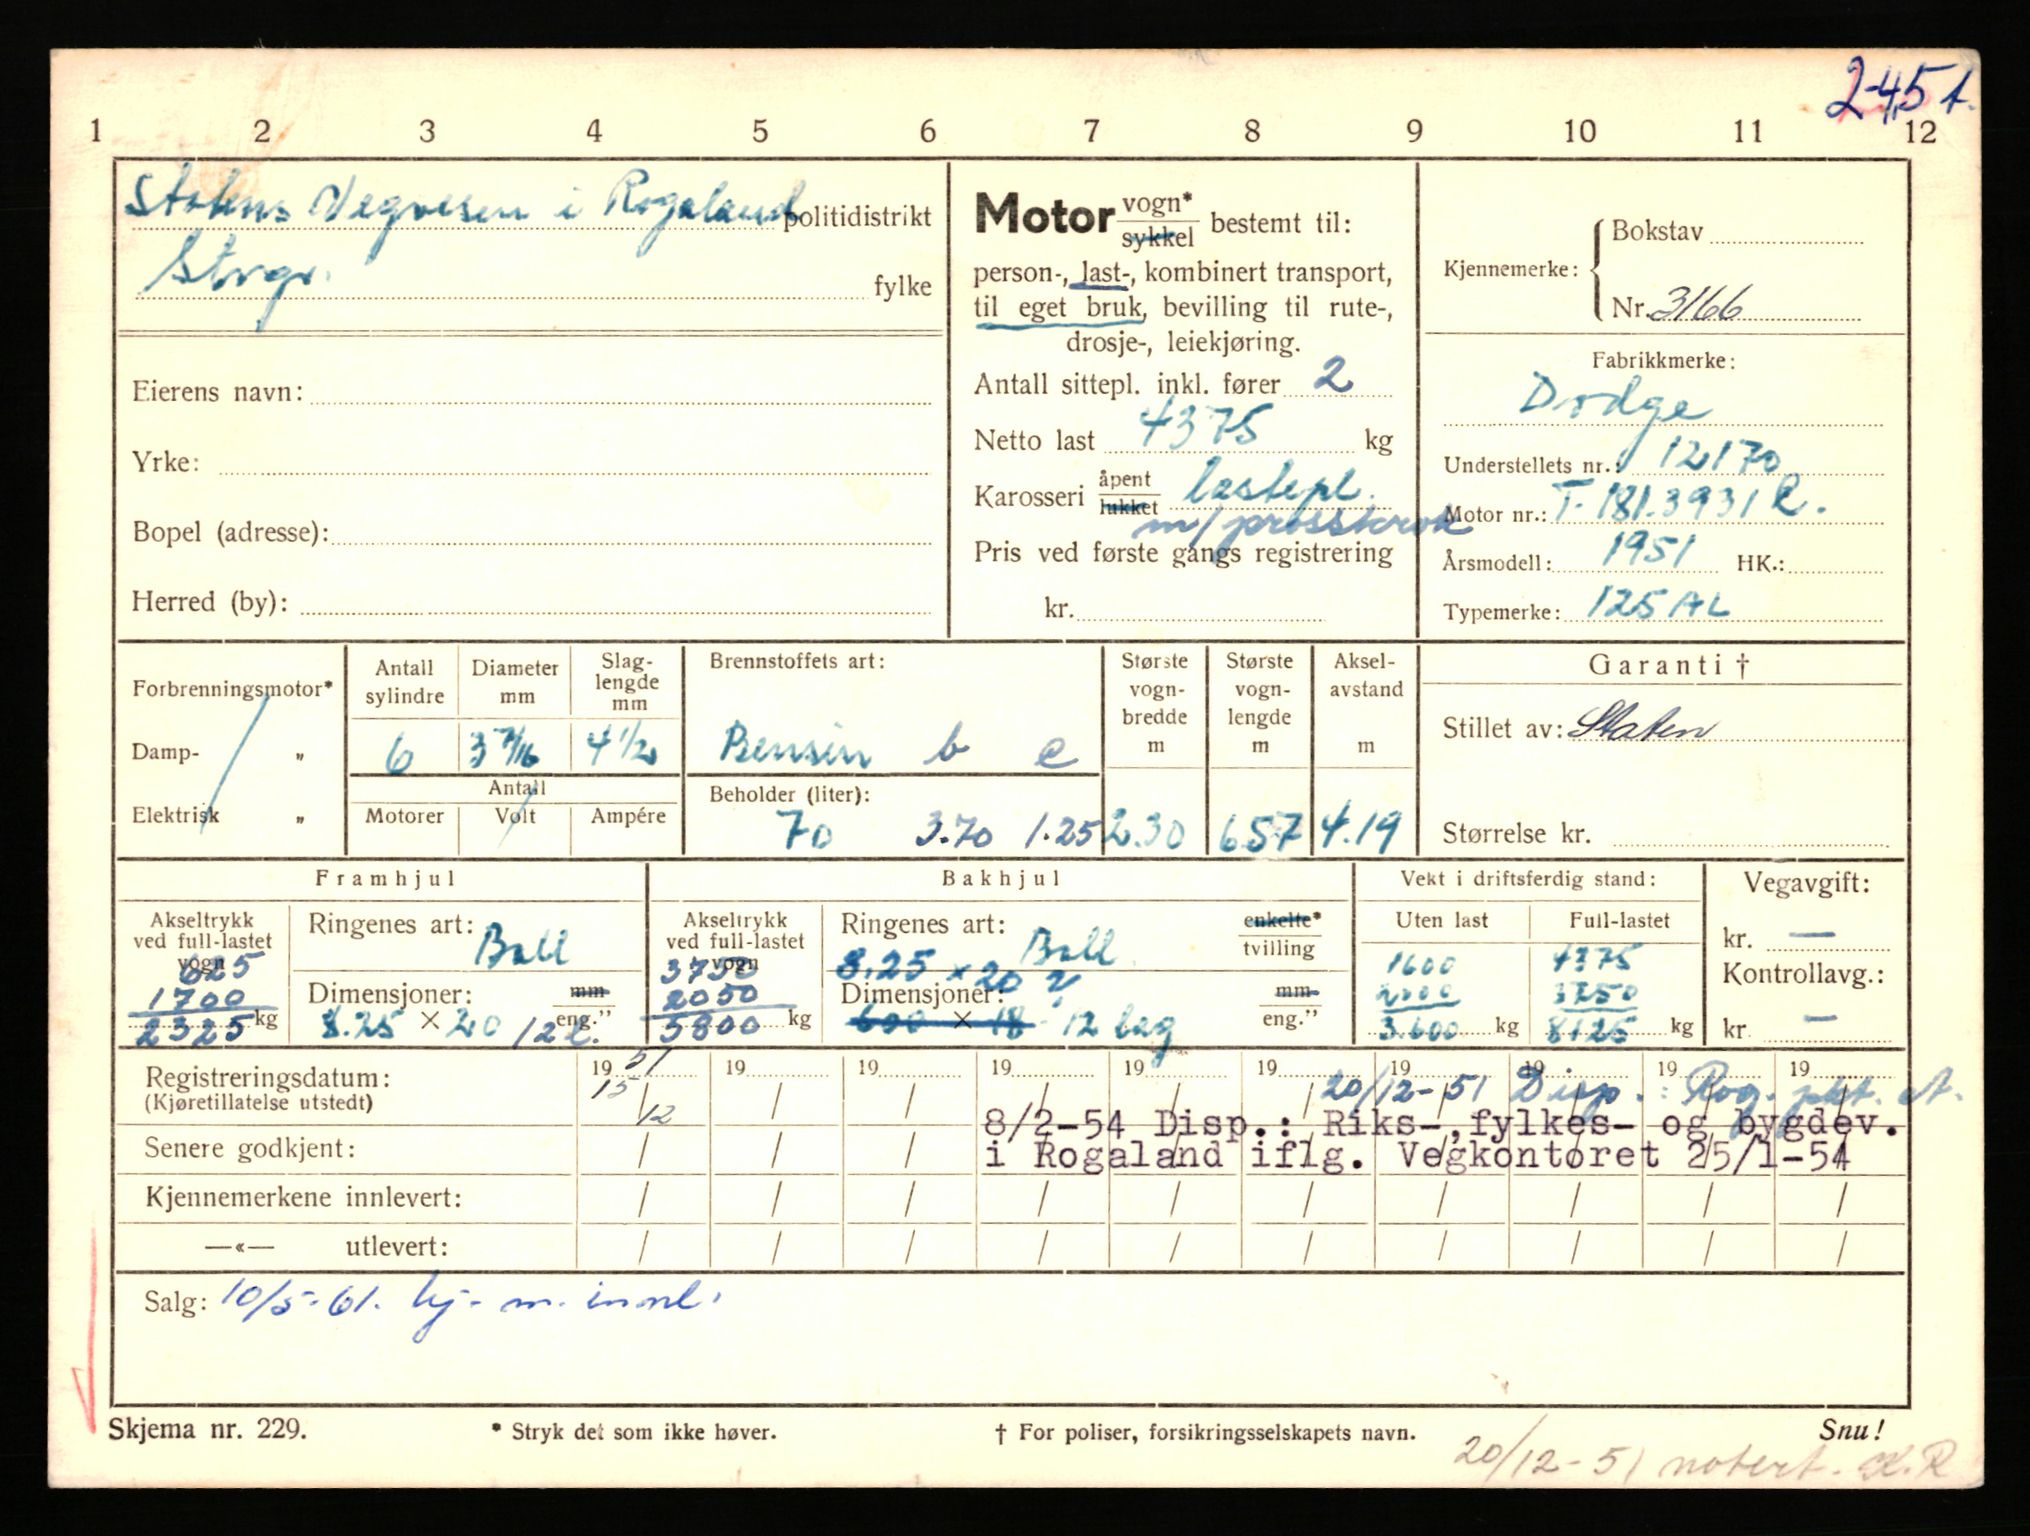 2-4,5 t.
1 2 3 4 5 6 7 8 9 10 11 12
Statens Vegvesen i Rogaland politidistrikt
Stvgr. fylke
Eierens navn:
Yrke:
Bopel (adresse):
Herred (by):
Motor vogn* sykkel bestemt til:
person-, last-, kombinert transport,
til eget bruk, bevilling til rute-,
drosje-, leiekjøring.
Antall sittepl. inkl. fører 2
Netto last 4375 kg
Karosseri åpent lukket lastepl.
m/
Pris ved første gangs registrering
kr.
Kjennemerke: Bokstav
Nr. 3166
Fabrikkmerke:
Dodge
Understellets nr.: 12170
Motor nr.: T. 181.3931 R.
Årsmodell: 1951 HK.:
Typemerke: 125 AL
Forbrenningsmotor*
Damp- „
Elektrisk „
Antall sylindre
Diameter mm
Slag-lengde mm
6 3 7/16 4 1/2
Antall
Motorer Volt Ampére
Brennstoffets art:
Bensin b e
Beholder (liter):
70 3.70 1.25
Største vogn-bredde m
2.30
Største vogn-lengde m
6.57
Aksel-avstand m
4.19
Garanti †
Stillet av: Staten
Størrelse kr.
Framhjul
Akseltrykk ved full-lastet vogn
625
1700
2325 kg
Ringenes art: Ball
Dimensjoner: mm eng.”
8.25 × 20 12 l.
Bakhjul
Akseltrykk ved full-lastet vogn
3750
2050
5800 kg
Ringenes art: Ball enkelte* tvilling
8.25 × 20
Dimensjoner: mm eng.”
600 × 18 12 lag
Vekt i driftsferdig stand:
Uten last Full-lastet
1600 4375
2000 3750
3.600 kg 8125 kg
Vegavgift:
kr. —
Kontrollavg.:
kr. —
Registreringsdatum: 19 51 19 19 19 19 19 19 19 19 19
(Kjøretillatelse utstedt) 15/12 20/12-51 Disp.: Rog.
8/2-54 Disp.: Riks-,fylkes- og bygdev.
Senere godkjent: i Rogaland iflg. Vegkontoret 25/1-54
Kjennemerkene innlevert:
—«— utlevert:
Salg: 10/5-61. kj-m. innl.
Skjema nr. 229. * Stryk det som ikke høver. † For poliser, forsikringsselskapets navn. Snu!
20/12-51 notert. K.R